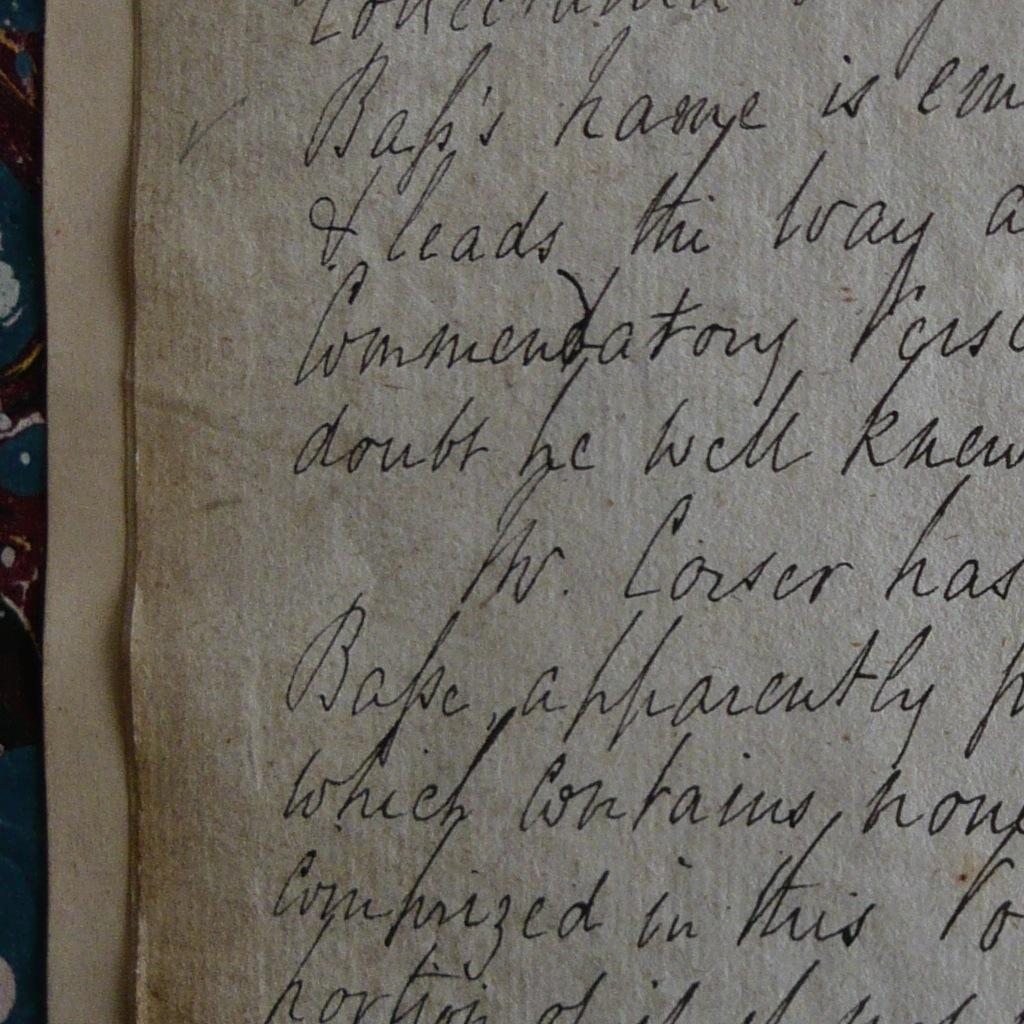 Baſs's name is
& leads the way
Commendatory
doubt he well knew
Mr. Corser has
Baſse, apparently
which contains none
comprized in this
portion of it